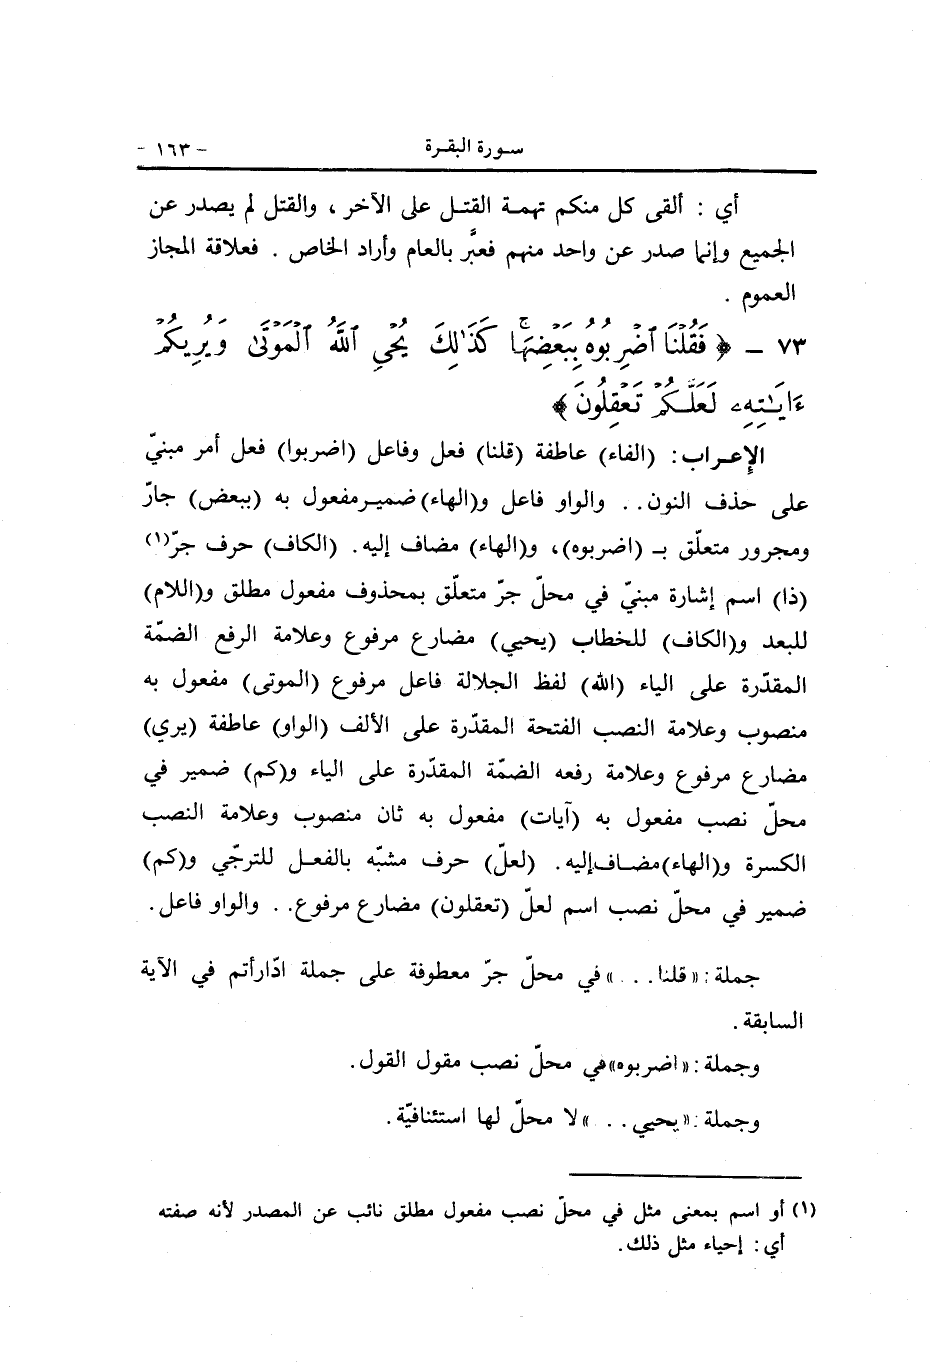 سورة البقرة - ١٦٣ -
أي : ألقى كل منكم تهمة القتل على الآخر ، والقتل لم يصدر عن
الجميع وإنما صدر عن واحد منهم فعبَّر بالعام وأراد الخاص . فعلاقة المجاز
العموم .
٧٣ - ﴿ فَقُلْنَا ٱضْرِبُوهُ بِبَعْضِهَاۚ كَذَٰلِكَ يُحْيِ ٱللَّهُ ٱلْمَوْتَىٰ وَيُرِيكُمْ
ءَايَـٰتِهِۦ لَعَلَّكُمْ تَعْقِلُونَ ﴾
الإعراب : (الفاء) عاطفة (قلنا) فعل وفاعل (اضربوا) فعل أمر مبنيّ
على حذف النون . . والواو فاعل و(الهاء) ضمير مفعول به (ببعض) جارّ
ومجرور متعلّق بـ (اضربوه)، و(الهاء) مضاف إليه. (الكاف) حرف جرّ(١)
(ذا) اسم إشارة مبنيّ في محلّ جرّ متعلّق بمحذوف مفعول مطلق و(اللام)
للبعد و(الكاف) للخطاب (يحيي) مضارع مرفوع وعلامة الرفع الضمّة
المقدّرة على الياء (الله) لفظ الجلالة فاعل مرفوع (الموتى) مفعول به
منصوب وعلامة النصب الفتحة المقدّرة على الألف (الواو) عاطفة (يري)
مضارع مرفوع وعلامة رفعه الضمّة المقدّرة على الياء و(كم) ضمير في
محلّ نصب مفعول به (آيات) مفعول به ثان منصوب وعلامة النصب
الكسرة و(الهاء) مضاف إليه. (لعلّ) حرف مشبّه بالفعل للترجّي و(كم)
ضمير في محلّ نصب اسم لعلّ (تعقلون) مضارع مرفوع. . والواو فاعل.
جملة : «قلنا. . . » في محلّ جرّ معطوفة على جملة ادّارأتم في الآية
السابقة .
وجملة : «اضربوه» في محلّ نصب مقول القول .
وجملة : «يحيي . . . » لا محلّ لها استئنافيّة .
(١) أو اسم بمعنى مثل في محلّ نصب مفعول مطلق نائب عن المصدر لأنه صفته
أي : إحياء مثل ذلك .